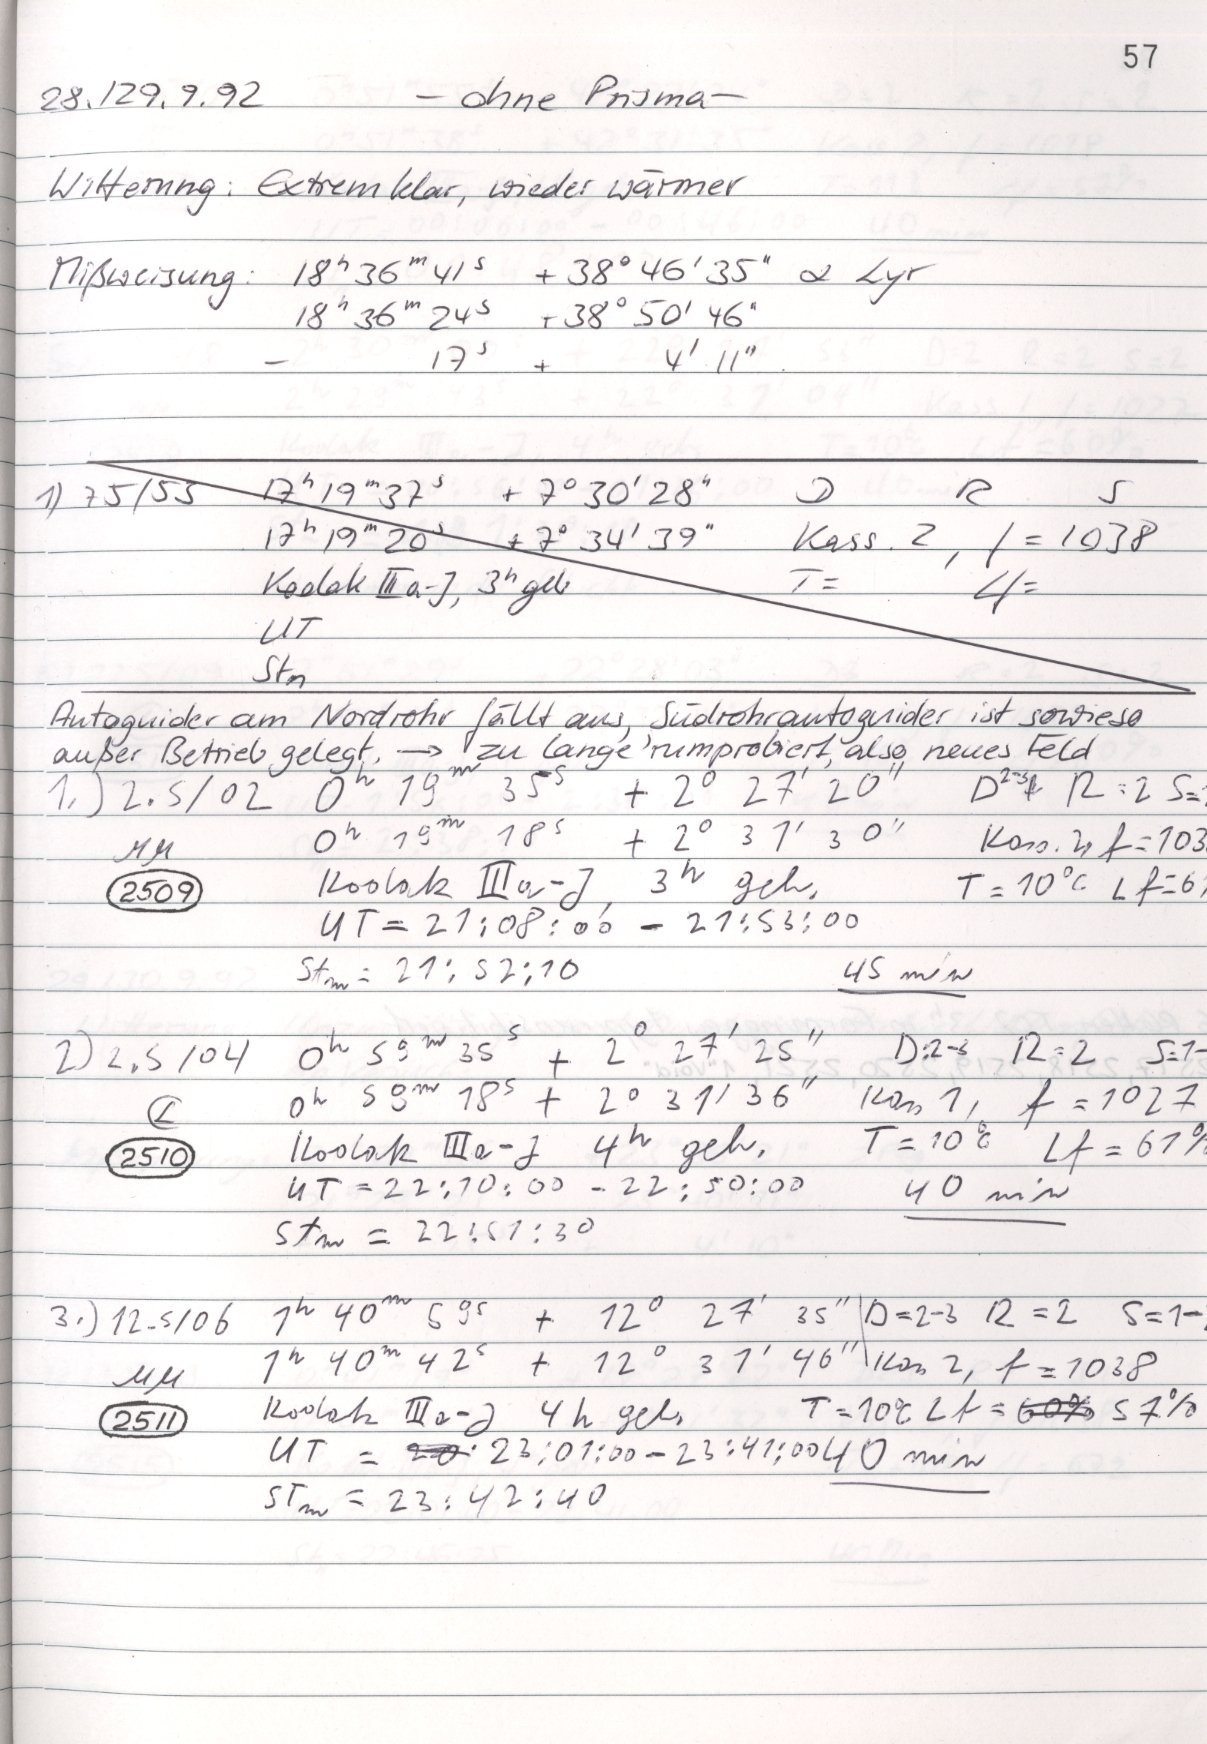 57
28./29.9.92 - ohne Prisma -
Witterung: Extrem klar, wieder wärmer
Mißweisung: 18h 36m 41s + 38° 46' 35" α Lyr
18h 36m 24s + 38° 50' 46"
- 17s + 4' 11"
1) 75/55 17h 19m 37s + 7° 30' 28" D R S
17h 19m 20s + 7° 34' 39" Kass. 2, f = 1038
Kodak IIIa-J, 3h geb T= Lf=
UT
Stm
Autoguider am Nordrohr fällt aus, Südrohrautoguider ist sowieso
außer Betrieb gelegt. → zu lange 'rumprobiert, also neues Feld
1.) 2.5/02 0h 19m 35s + 2° 27' 20" D 2-3 R=2 S=
0h 19m 18s + 2° 31' 30" Kass. 2, f=103
MM
2509 Kodak IIIa-J, 3h geb. T=10°C Lf=6
UT = 21:08:00 - 21:53:00
Stm = 21:52:10 45 min
2) 2.5/04 0h 59m 35s + 2° 27' 25" D:2-3 R=2 S=1-
0h 59m 18s + 2° 31' 36" Kass 1, f=1027
2510 Kodak IIIa-J 4h geb. T=10°C Lf=61%
UT = 22:10:00 - 22:50:00 40 min
Stm = 22:51:30
3.) 12.5/06 1h 40m 59s + 12° 27' 35" D=2-3 R=2 S=1-
1h 40m 42s + 12° 31' 46" Kass 2, f=1038
MM
2511 Kodak IIIa-J 4h geb. T=10°C Lf=60% 57%
UT = 20: 23:01:00 - 23:41:00 40 min
STm = 23:42:40